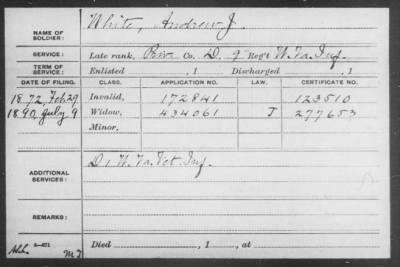 NAME OF SOLDIER: White, Andrew J.
SERVICE: Late rank, Priv Co. D, 9 Reg't W. Va. Inf.
TERM OF SERVICE: Enlisted , 1 Discharged , 1
DATE OF FILING. CLASS. APPLICATION NO. LAW. CERTIFICATE NO.
1872, Feb. 29 Invalid, 172841 123510
1890, July 9 Widow, 434061 J 277653
Minor,
ADDITIONAL SERVICES: D, 1 W. Va. Vet. Inf.
REMARKS:
Died , 1 , at